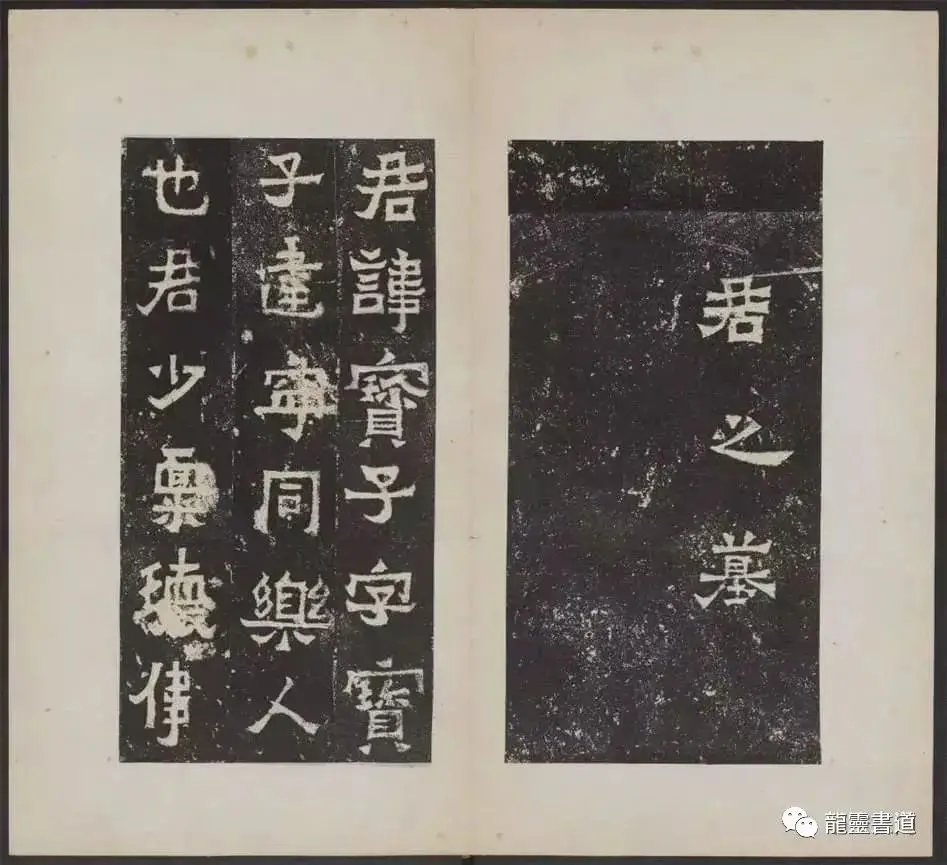 君之墓
君諱寶子字寶
子達寧同樂人
也君少稟瓌偉
龍靈書道